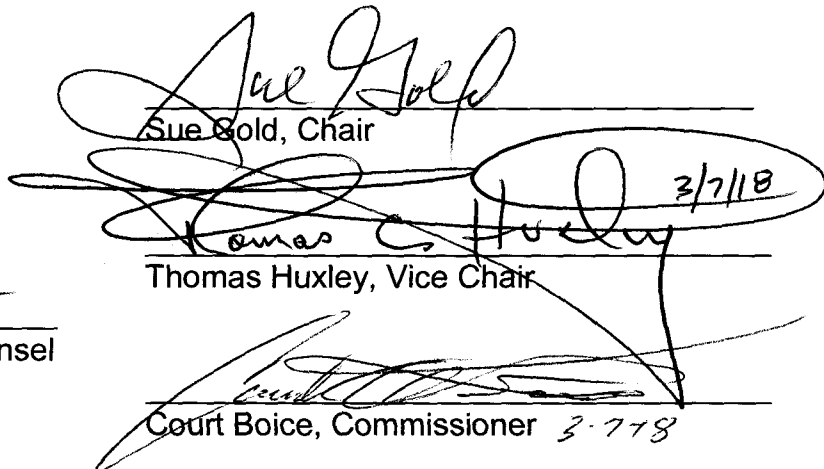 Sue Gold
Sue Gold, Chair
3/7/18
Thomas C Huxley
Thomas Huxley, Vice Chair
nsel
Court Boice, Commissioner 3-7-18